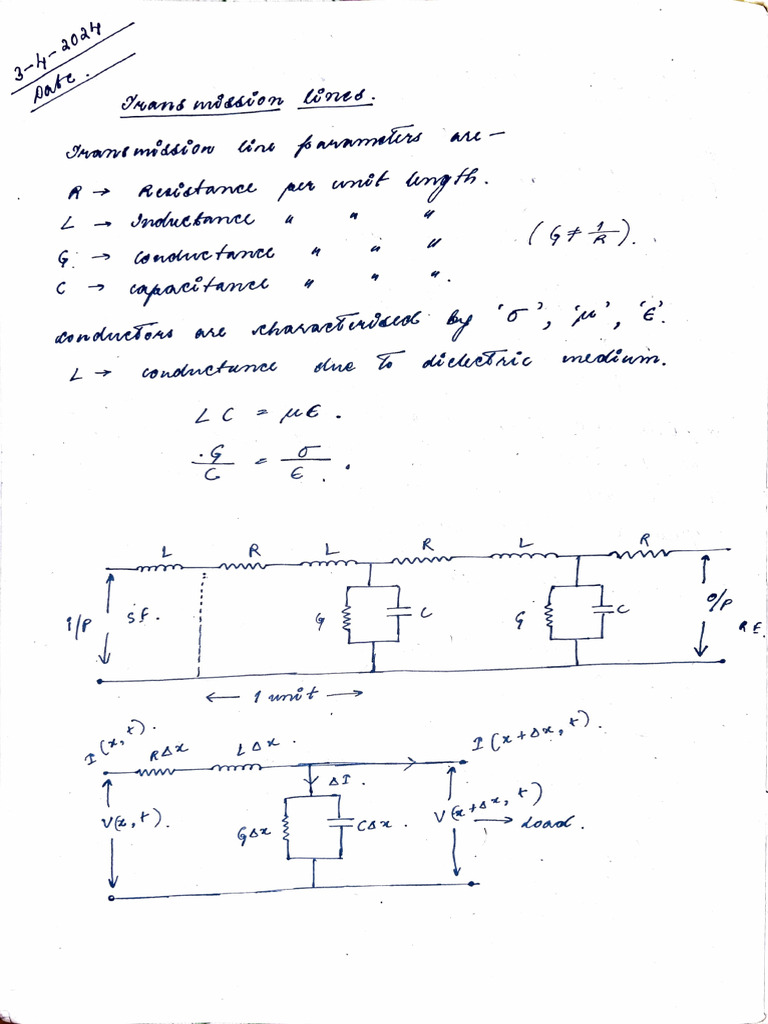 3-4-2024
Date.
Transmission lines.
Transmission line parameters are –
R → Resistance per unit length.
L → Inductance " " "
G → conductance " " " (G ≠ 1/R).
C → capacitance " " ".
conductors are characterised by 'σ', 'μ', 'ε'.
L → conductance due to dielectric medium.
LC = με.
G/C = σ/ε.
L R L R L R
I/P S.E. G C G C O/P R.E.
← 1 unit →
I(x,t). RΔx LΔx. I(x+Δx,t).
ΔI.
V(x,t). GΔx CΔx. V(x+Δx,t) → Load.